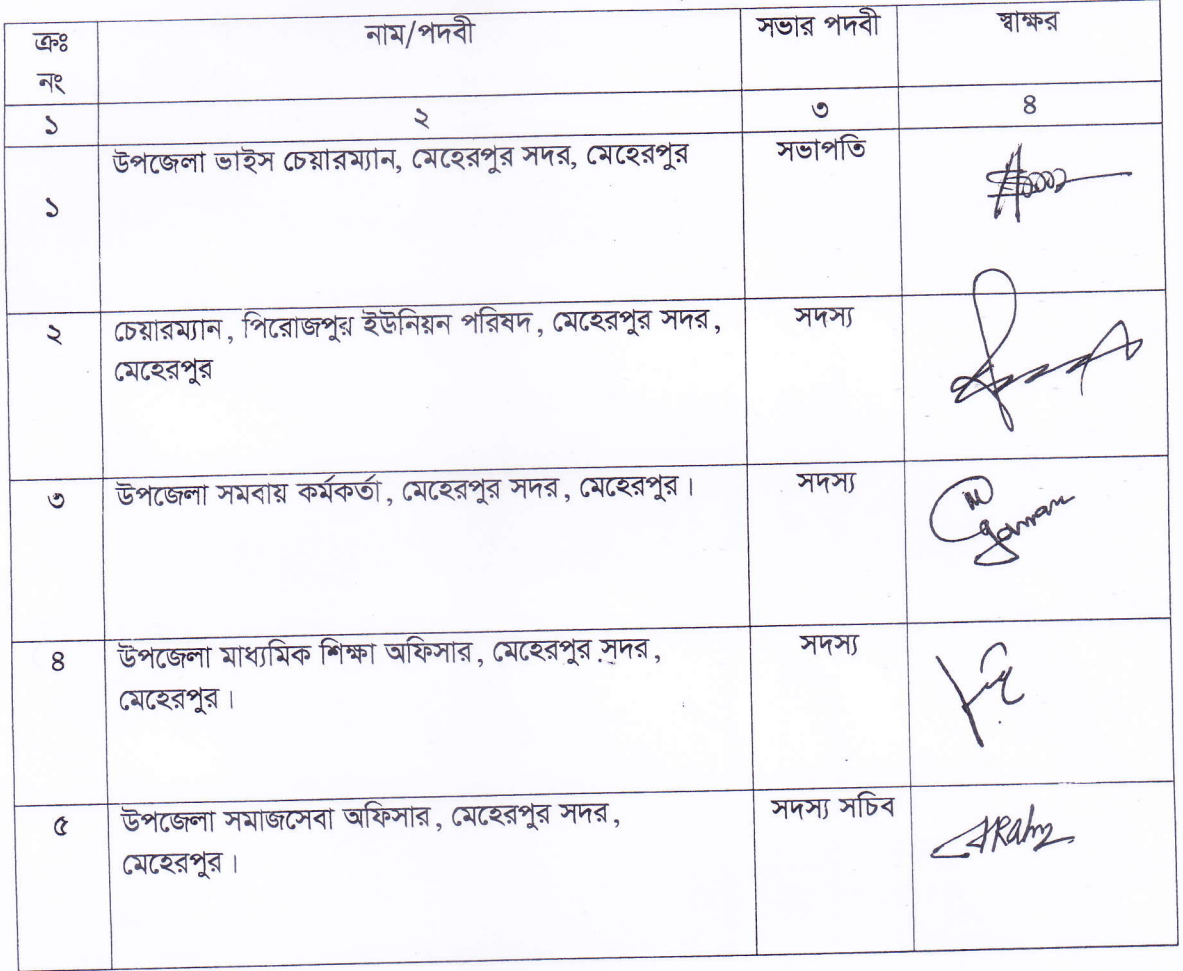 ক্রঃ নং নাম/পদবী সভার পদবী স্বাক্ষর
১ ২ ৩ ৪
১ উপজেলা ভাইস চেয়ারম্যান, মেহেরপুর সদর, মেহেরপুর সভাপতি
২ চেয়ারম্যান, পিরোজপুর ইউনিয়ন পরিষদ, মেহেরপুর সদর, সদস্য
মেহেরপুর
৩ উপজেলা সমবায় কর্মকর্তা, মেহেরপুর সদর, মেহেরপুর। সদস্য
৪ উপজেলা মাধ্যমিক শিক্ষা অফিসার, মেহেরপুর সদর, সদস্য
মেহেরপুর।
৫ উপজেলা সমাজসেবা অফিসার, মেহেরপুর সদর, সদস্য সচিব
মেহেরপুর।